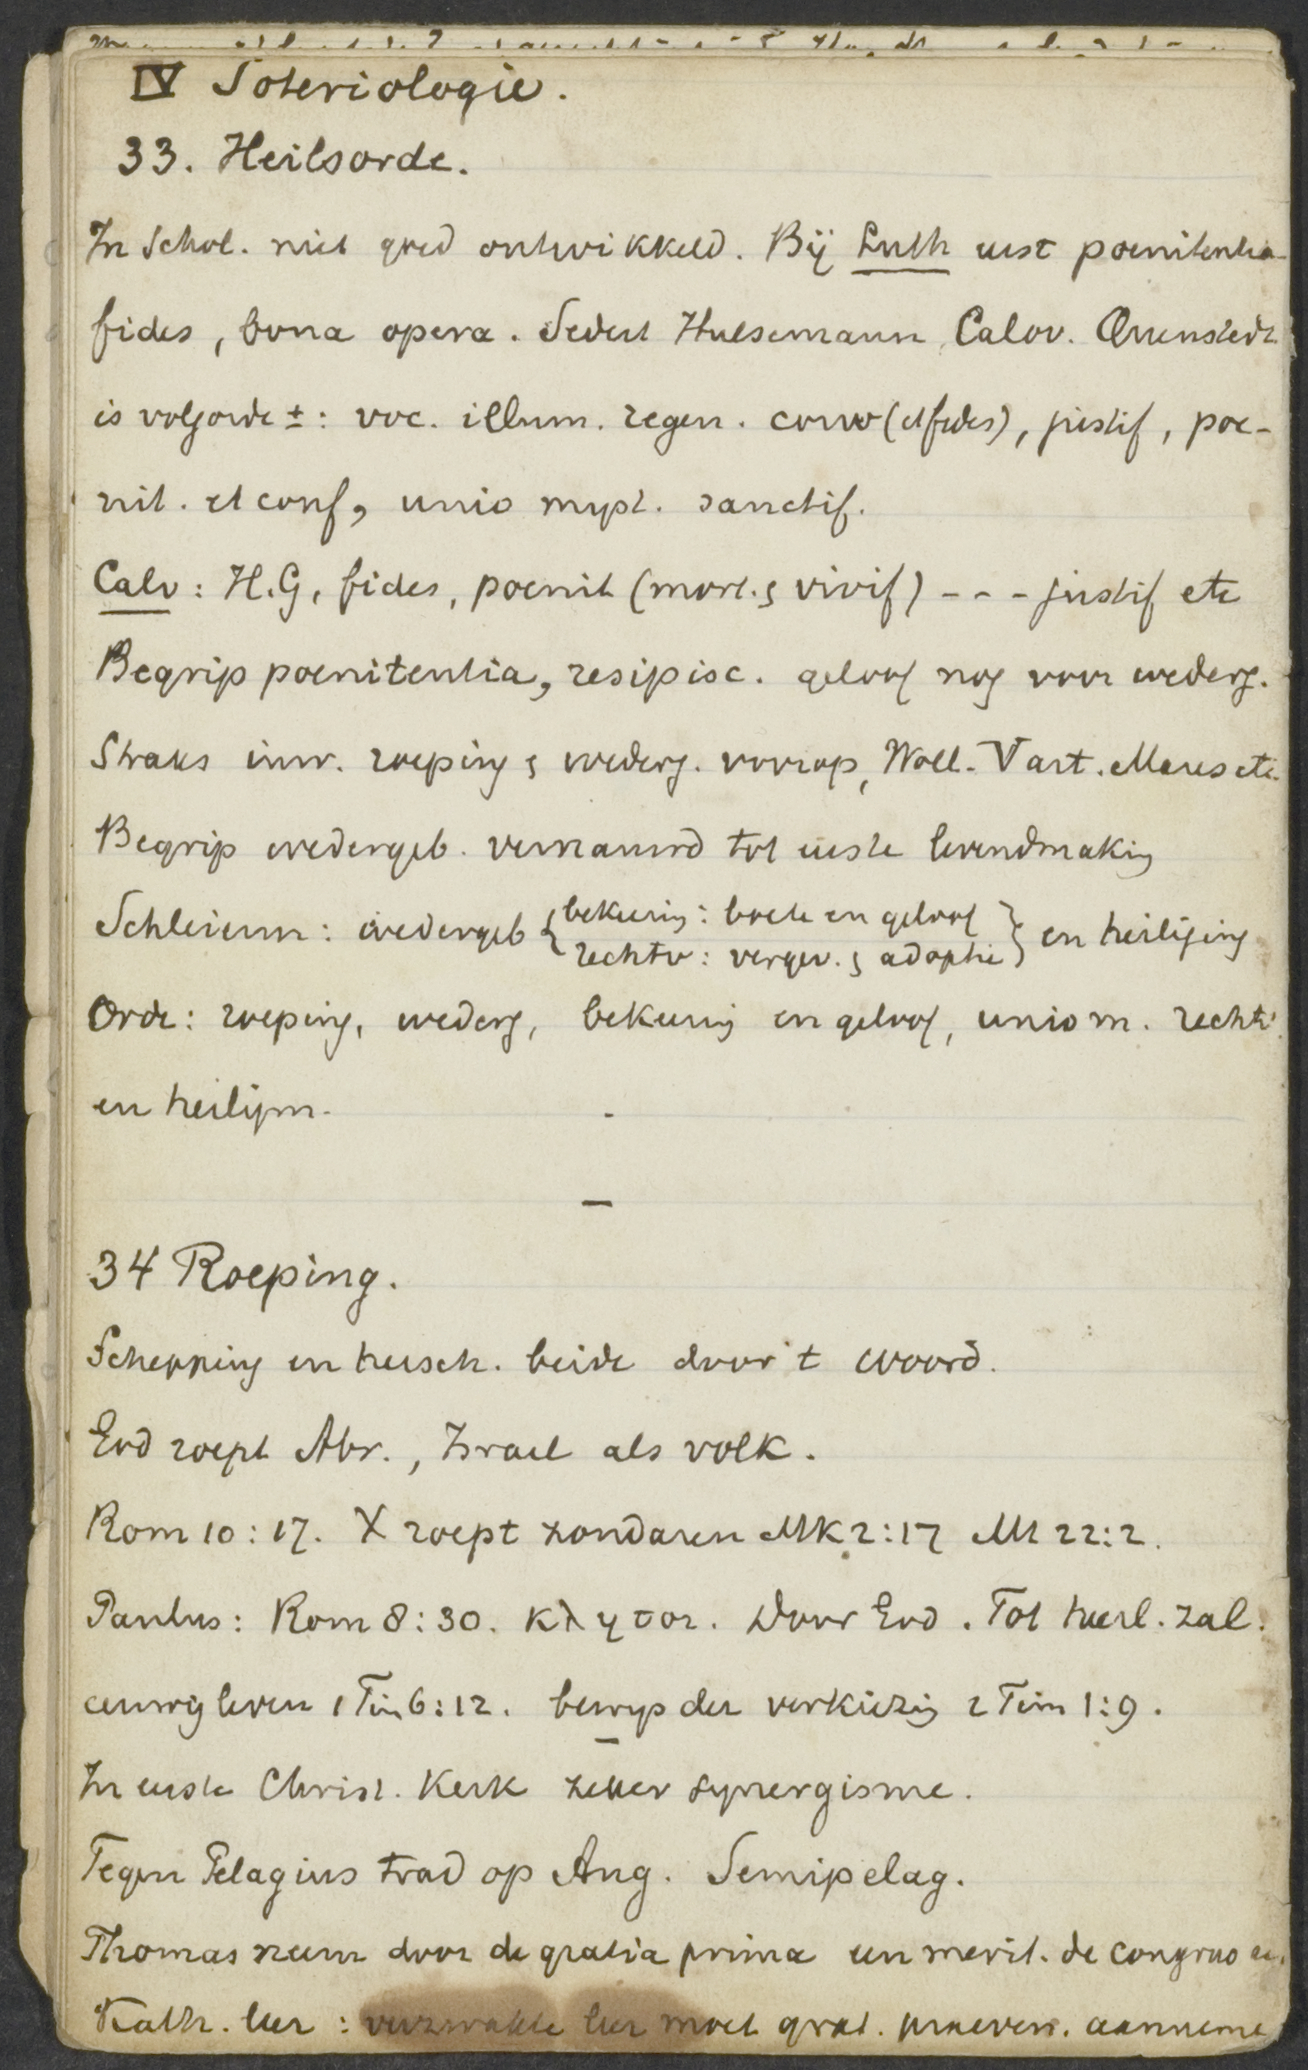 IV Soteriologie.
33. Heilsorde.
In Schol. niet goed ontwikkeld. Bij Luth eerst poenitentia
fides, bona opera. Sedert Hulsemann, Calov. Quenstedt
is volgorde ±: voc. illum. regen. conv (et fides), justif, poe-
nit. et conf, unio myst. sanctif.
Calv: H.G, fides, poenit (mort. & vivif) - - - justif etc
Begrip poenitentia, resipisc. geloof nog voor wederg.
Straks inw. roeping & wederg. voorop, Woll. Mast. Mares etc.
Begrip wedergeb. vernauwd tot eerste levendmaking
Schleierm: wedergeb { bekering: boete en geloof
rechtv: vergev. & adoptie } en heiliging
Orde: roeping, wederg, bekering en geloof, unio m. rechtv.
en heiligm.
—
34 Roeping.
Schepping en hersch. beide door 't woord.
God roept Abr., Israel als volk.
Rom 10:17. X roept zondaren Mk 2:17 Mt 22:2.
Paulus: Rom 8:30. κλητοι. Door God. Tot heerl. zal.
eeuwig leven 1 Tim 6:12. bewijs der verkiezing 2 Tim 1:9.
—
In eerste Christ. Kerk zeker synergisme.
Tegen Pelagius trad op Aug. Semipelag.
Thomas neem door de gratia prima een merit. de congruo
Kath. leer: moet grat. praeven. aanneme